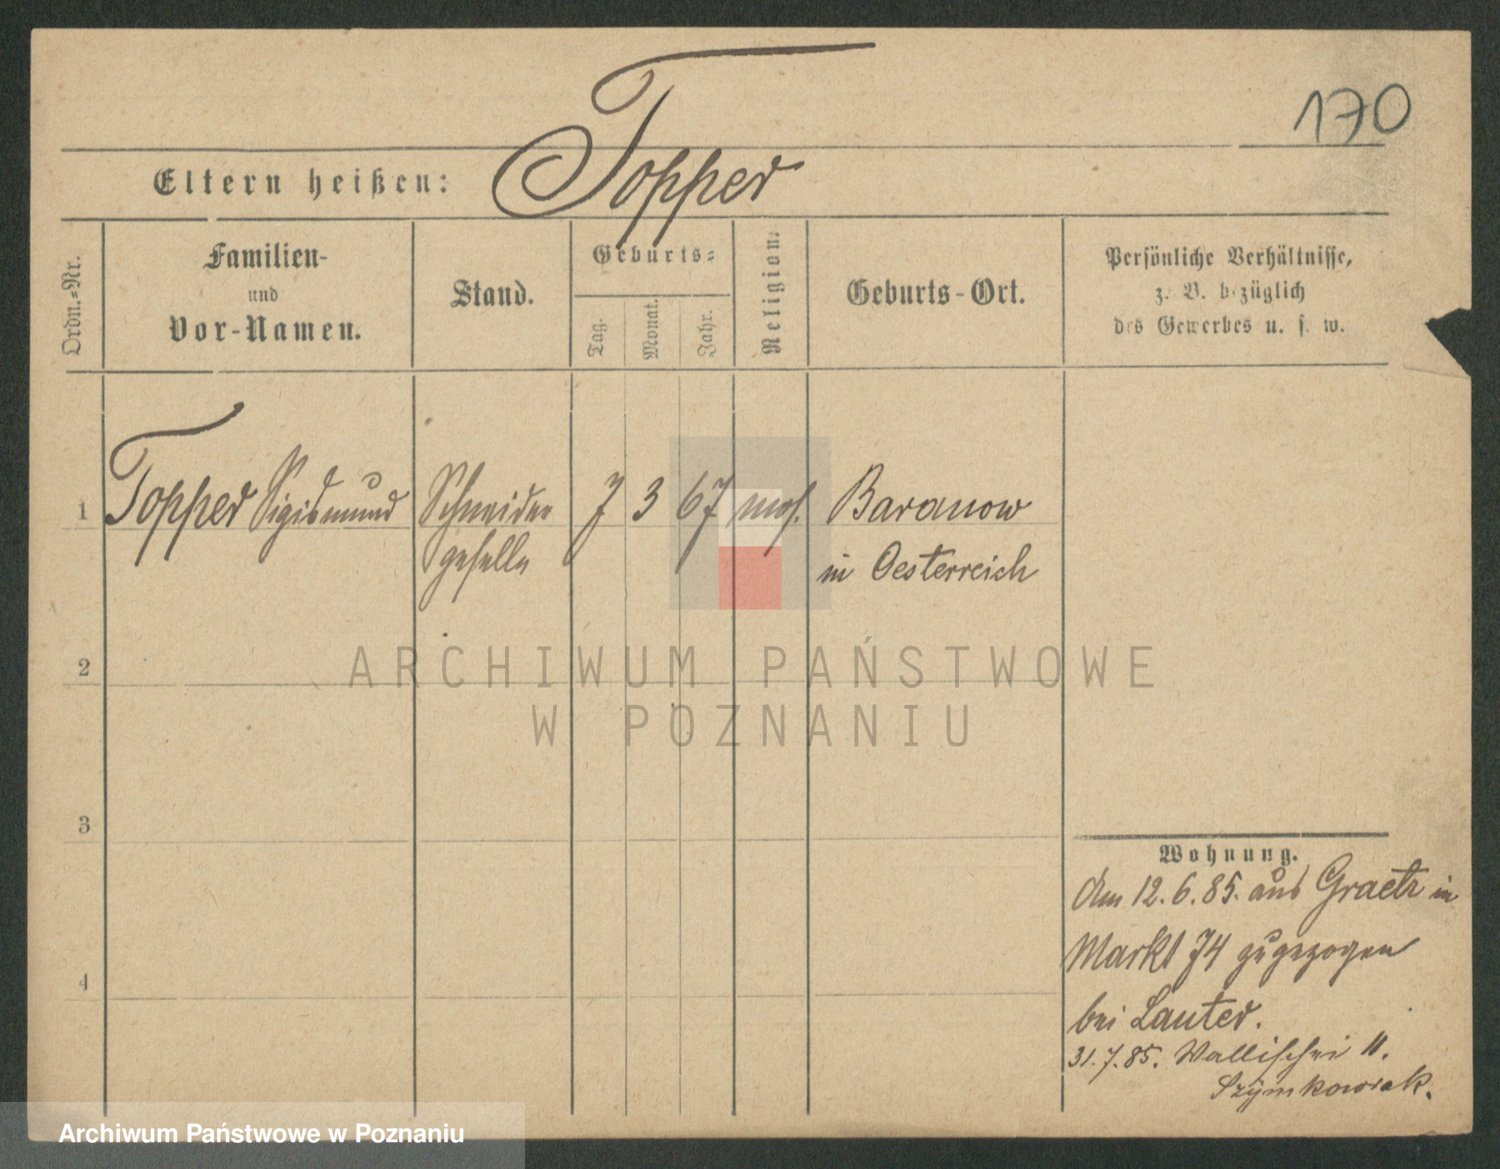 170
Eltern heißen: Topper
Ordn.=Nr.
Familien-
und
Vor-Namen.
Stand.
Geburts=
Tag.
Monat.
Jahr.
Religion.
Geburts-Ort.
Persönliche Verhältnisse,
z. B. bezüglich
des Gewerbes u. s. w.
1 Topper Sigismund Schneider 7 3 67 mos. Baranow
geselle in Oesterreich
2
3
4
Wohnung.
Am 12. 6. 85. aus Graetz in
Markt 74 zugezogen
bei Lauter.
31. 7. 85. Wallischei 11.
Szymkowiak.
ARCHIWUM PAŃSTWOWE
W POZNANIU
Archiwum Państwowe w Poznaniu